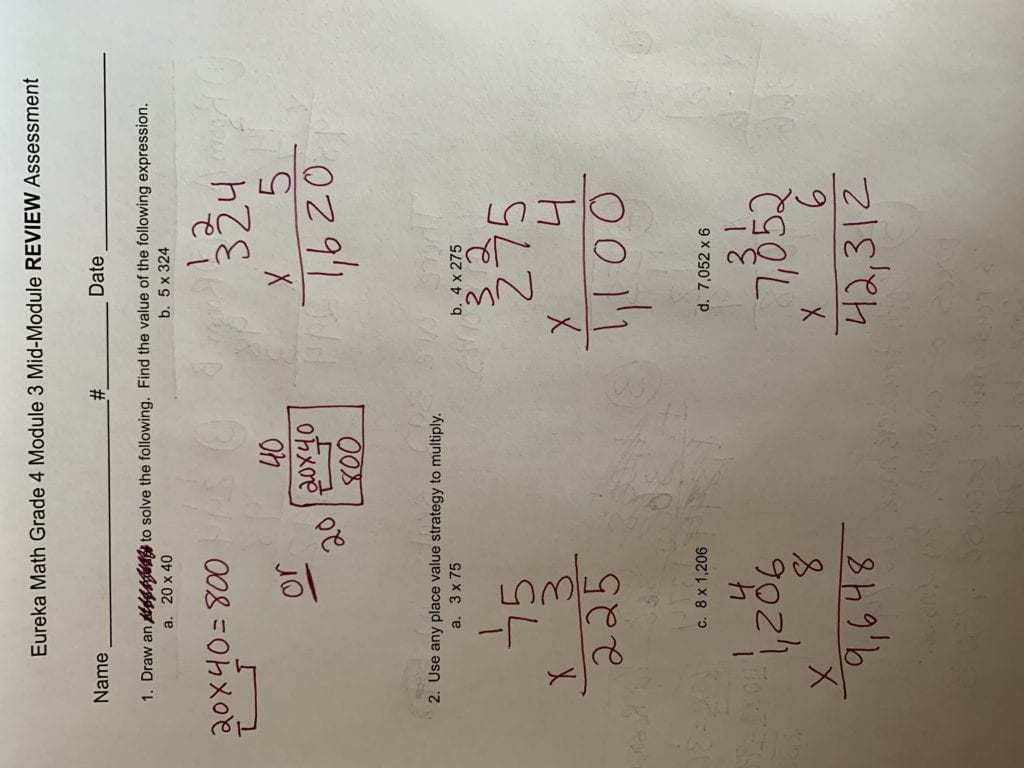 Eureka Math Grade 4 Module 3 Mid-Module REVIEW Assessment
Name ____________________# ______ Date ____________
1. Draw an to solve the following. Find the value of the following expression.
a. 20 x 40
20 x 40 = 800
or
40
20
20x40
800
b. 5 x 324
1 2
324
x 5
1,620
2. Use any place value strategy to multiply.
a. 3 x 75
1
75
x 3
225
b. 4 x 275
3 2
275
x 4
1,100
c. 8 x 1,206
1 4
1,206
x 8
9,648
d. 7,052 x 6
3 1
7,052
x 6
42,312